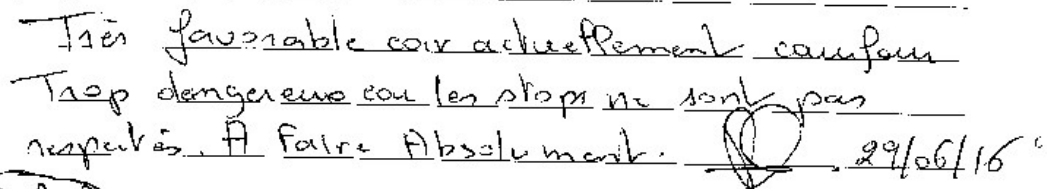 Très favorable car actuellement carrefour
Trop dangereux car les stops ne sont pas
respectés. A faire Absolument. 29/06/16